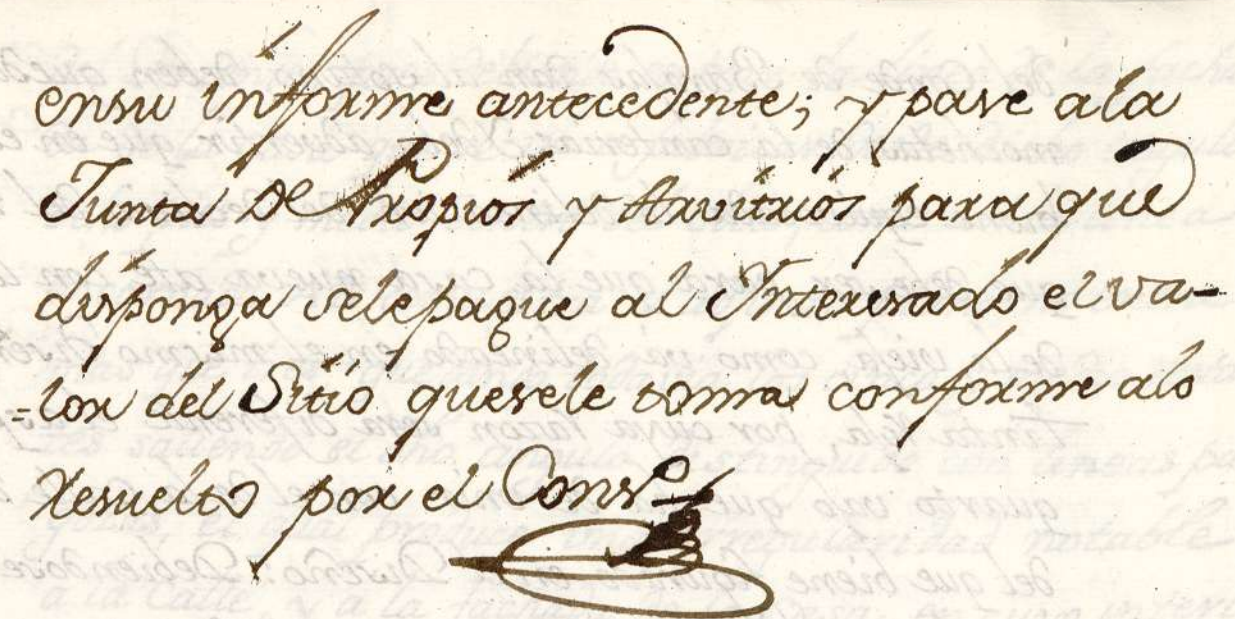 ensu informe antecedente; y pase ala
Junta de Propios y Arvitrios para que
disponga selepague al Interesado el va-
=lor del Sitio quesele toma conforme alo
Resuelto por el Cons.º